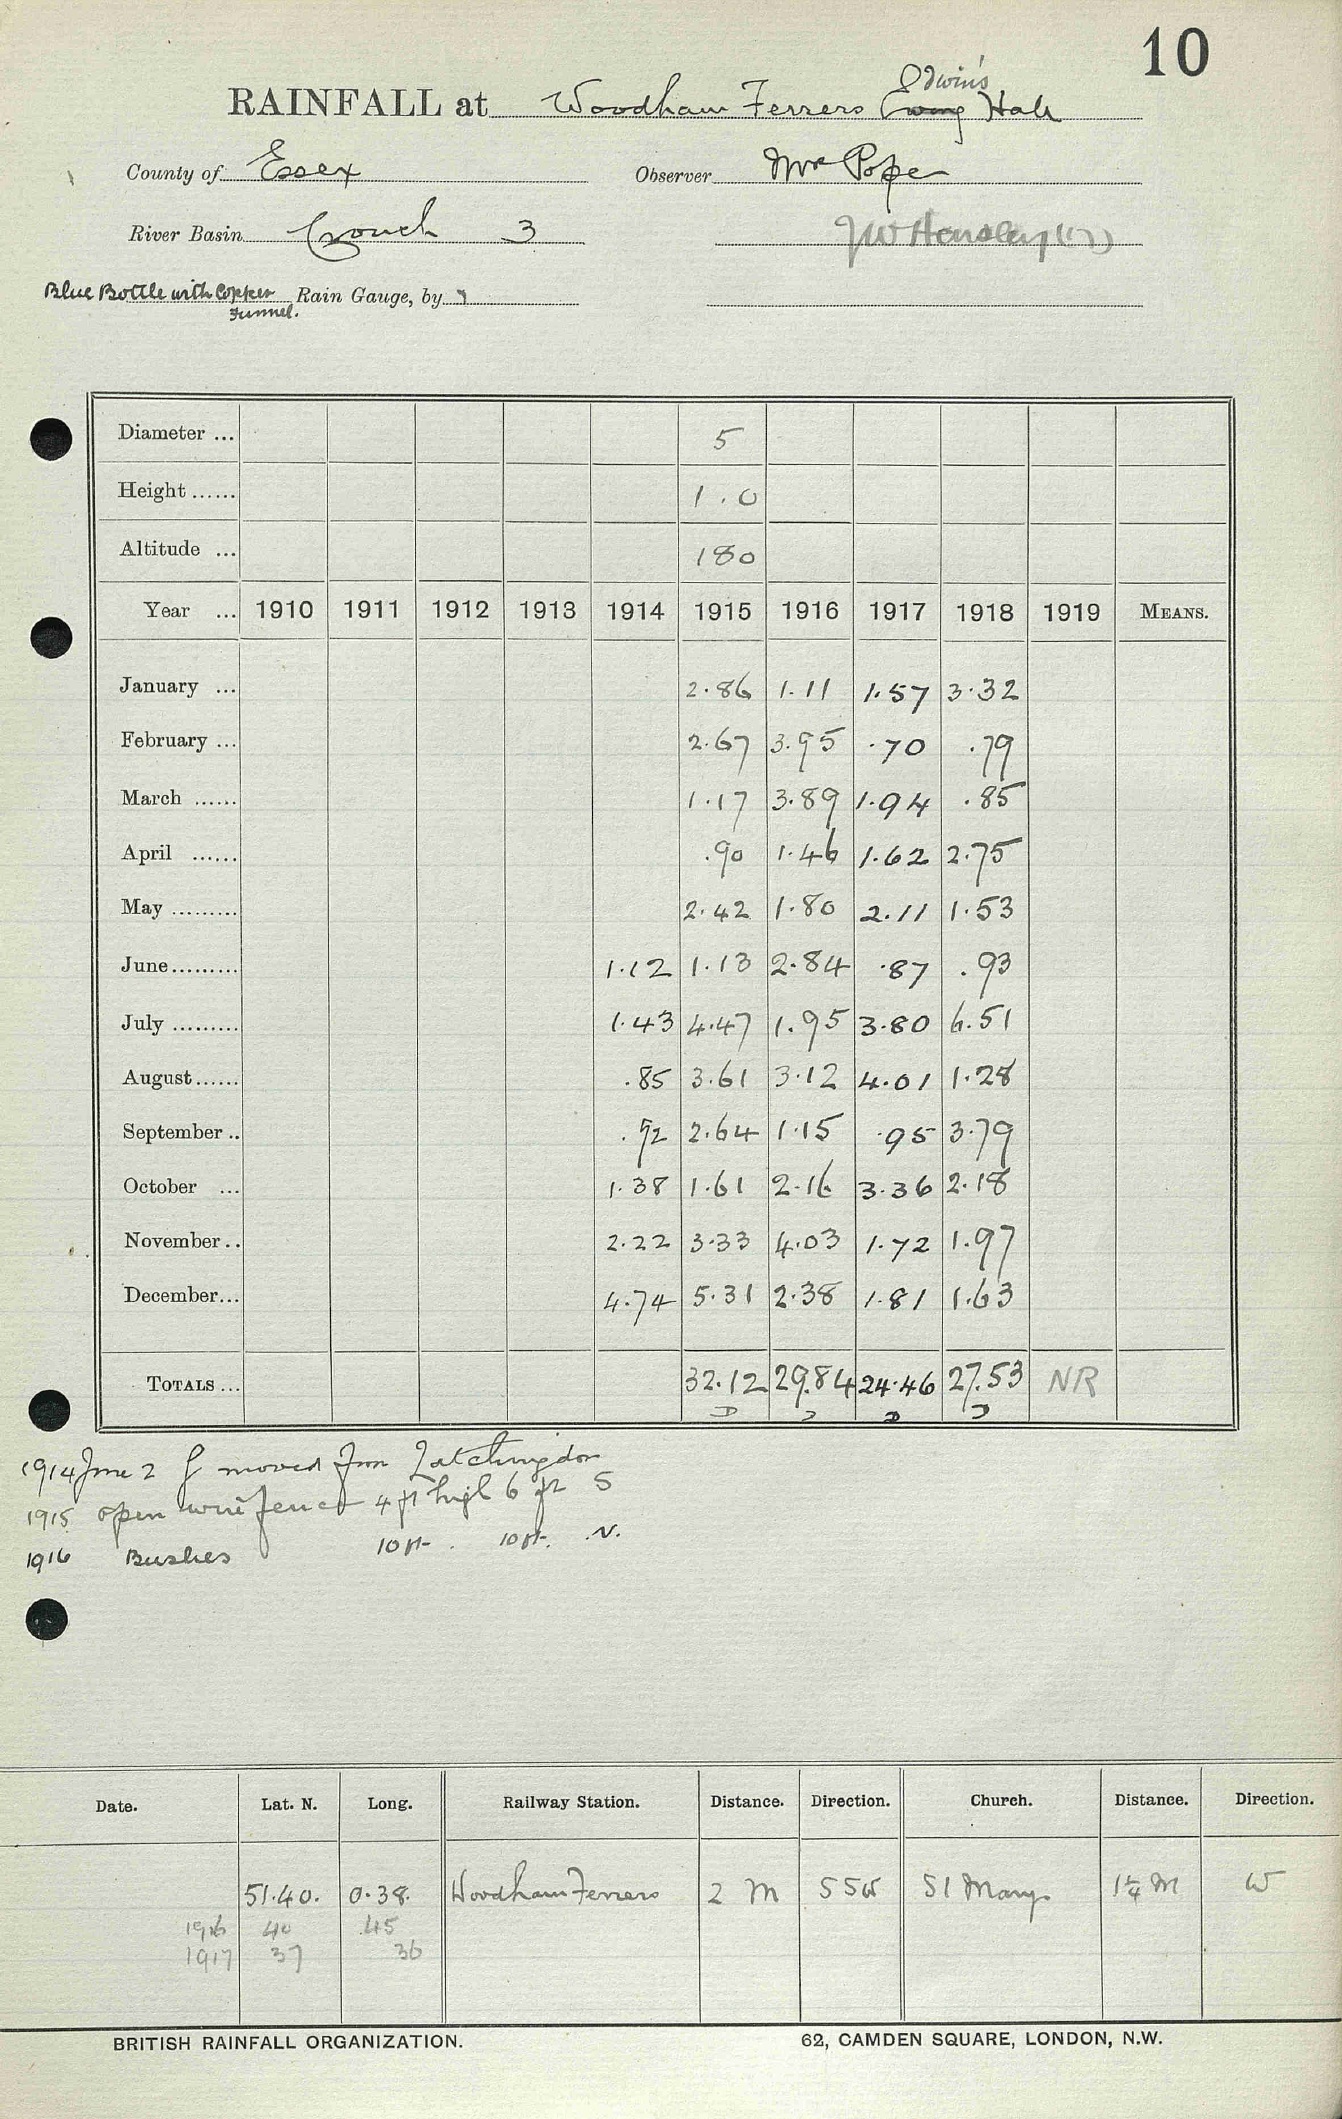 10
Edwin's
RAINFALL at Woodham Ferrers Ewing Hall
County of Essex Observer Mr Pope
River Basin Crouch 3 J W Hensley (17)
Blue Bottle with Copper Funnel. Rain Gauge, by ?
Diameter ... 5
Height ...... 1.0
Altitude ... 180
Year ... 1910 1911 1912 1913 1914 1915 1916 1917 1918 1919 MEANS.
January ... 2.86 1.11 1.57 3.32
February ... 2.67 3.95 .70 .79
March ...... 1.17 3.89 1.94 .85
April ...... .90 1.46 1.62 2.75
May ......... 2.42 1.80 2.11 1.53
June......... 1.12 1.13 2.84 .87 .93
July ......... 1.43 4.47 1.95 3.80 6.51
August...... .85 3.61 3.12 4.01 1.28
September .. .92 2.64 1.15 .95 3.79
October ... 1.38 1.61 2.16 3.36 2.18
November .. 2.22 3.33 4.03 1.72 1.97
December... 4.74 5.31 2.38 1.81 1.63
TOTALS ... 32.12 29.84 24.46 27.53 NR
1914 June 2 G moved from Latchingdon
1915 open wire fence 4 ft high 6 ft S
1916 Bushes 10 ft. 10 ft. N.
Date. Lat. N. Long. Railway Station. Distance. Direction. Church. Distance. Direction.
51.40. 0.38. Woodham Ferrers 2 M SSW St Marys 1¼ M W
1916 40 45
1917 37 36
BRITISH RAINFALL ORGANIZATION. 62, CAMDEN SQUARE, LONDON, N.W.